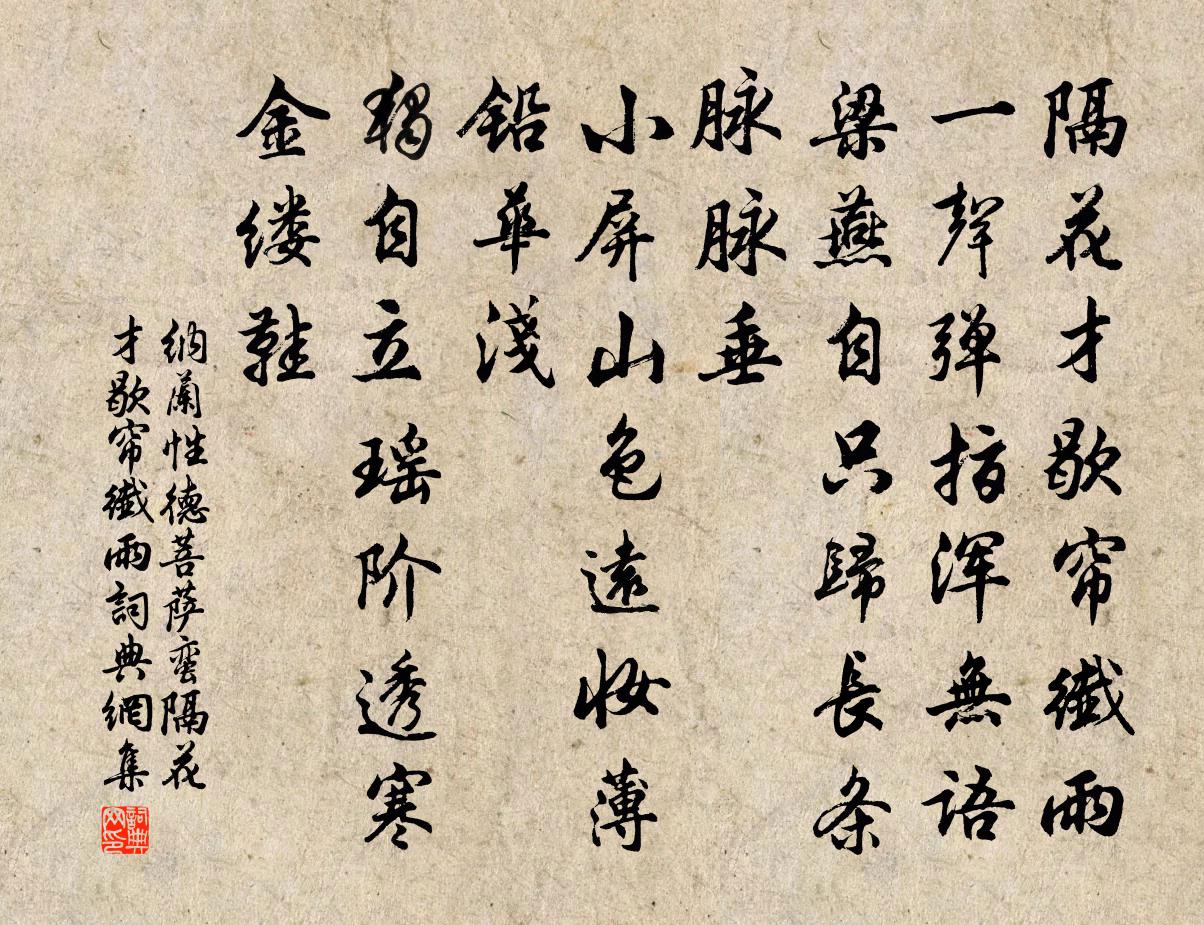 隔花才歇帘纖雨
一聲弹指浑無語
梁燕自只歸長条
脉脉垂
小屏山色遠妆薄
铅華淺
獨自立瑶阶透寒
金缕鞋
纳蘭性德菩萨蛮隔花
才歇帘纖雨詞典網集
詞典
网印